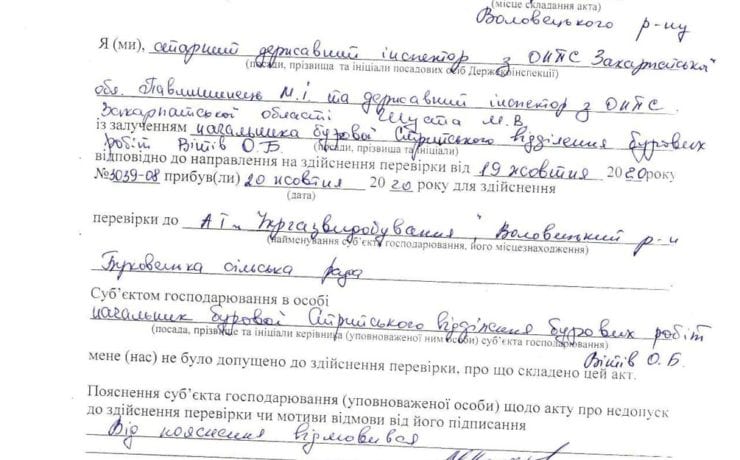 (місце складання акта)
Воловецького р-ну
Я (ми), старший державний інспектор з ОНПС Закарпатської
(посади, прізвища та ініціали посадових осіб Держекоінспекції)
обл. Павлишинець М.І. та державний інспектор з ОНПС
Закарпатської області М.В.
із залученням начальника бурової Стрийського відділення бурових
(посади, прізвища та ініціали)
робіт Вітів О.Б.
відповідно до направлення на здійснення перевірки від 19 жовтня 2020 року
№3039-08 прибув(ли) 20 жовтня 2020 року для здійснення
(дата)
перевірки до АТ „Укргазвидобування", Воловецький р-н
(найменування суб’єкта господарювання, його місцезнаходження)
сільська рада
Суб’єктом господарювання в особі
начальник бурової Стрийського відділення бурових робіт
(посада, прізвище та ініціали керівника (уповноваженої ним особи) суб’єкта господарювання)
Вітів О.Б.
мене (нас) не було допущено до здійснення перевірки, про що складено цей акт.
Пояснення суб’єкта господарювання (уповноваженої особи) щодо акту про недопуск
до здійснення перевірки чи мотиви відмови від його підписання
Від пояснення відмовився